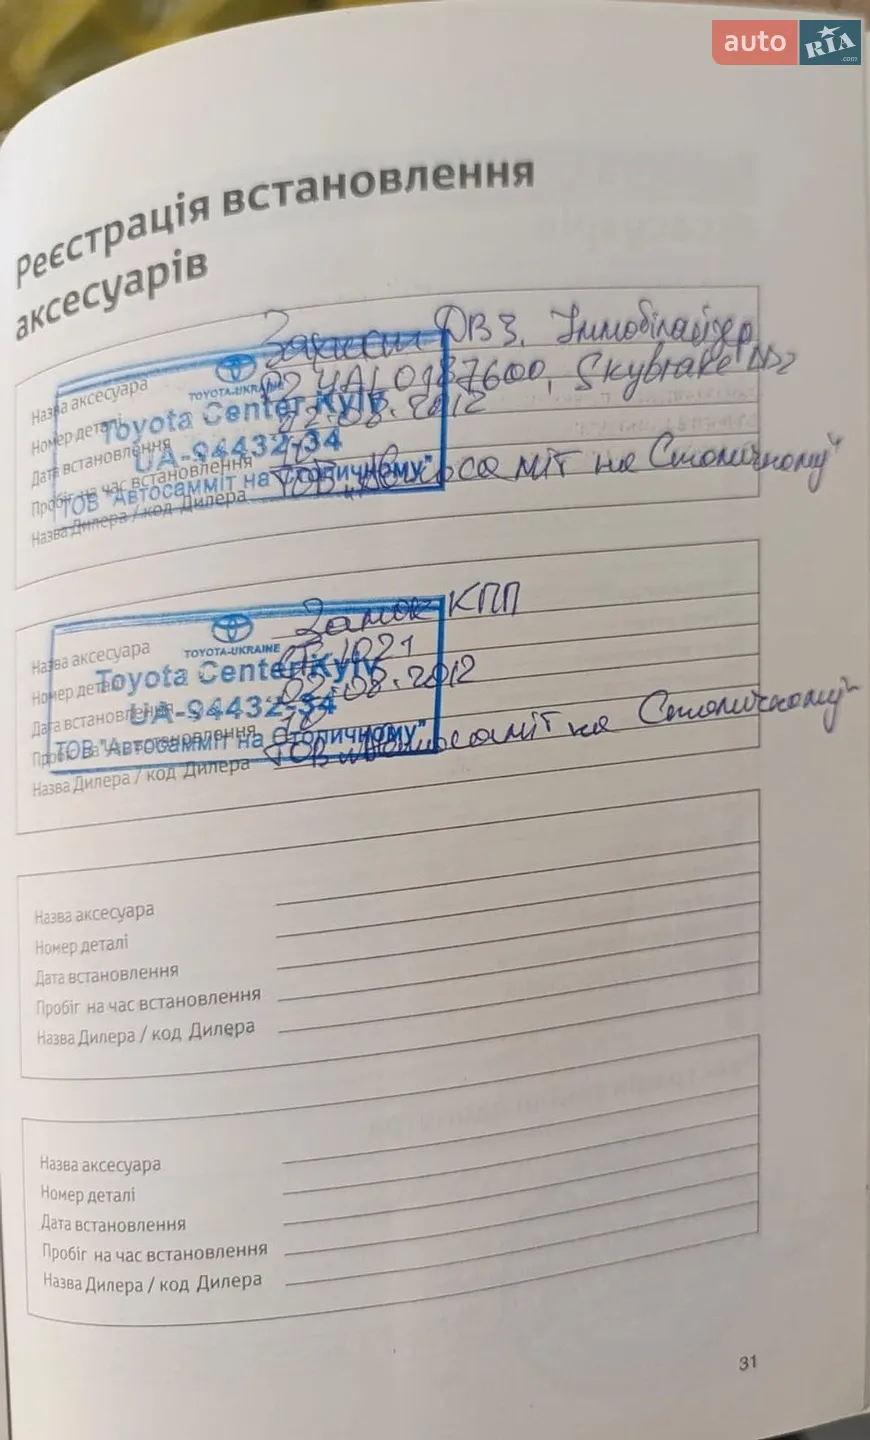 auto RIA.com
Реєстрація встановлення
аксесуарів
Назва аксесуара Захист ДВЗ, Іммобілайзер
Номер деталі Skybrake
Дата встановлення 02.08.2012
Пробіг на час встановлення
Назва Дилера / код Дилера ТОВ "Автосаміт на Столичному"
TOYOTA-UKRAINE
Toyota Center Kyiv
UA-94432-34
ТОВ "Автосамміт на Столичному"
Назва аксесуара Замок КПП
Номер деталі
Дата встановлення 02.08.2012
Пробіг на час встановлення 10
Назва Дилера / код Дилера ТОВ "Автосаміт на Столичному"
TOYOTA-UKRAINE
Toyota Center Kyiv
UA-94432-34
ТОВ "Автосамміт на Столичному"
Назва аксесуара
Номер деталі
Дата встановлення
Пробіг на час встановлення
Назва Дилера / код Дилера
Назва аксесуара
Номер деталі
Дата встановлення
Пробіг на час встановлення
Назва Дилера / код Дилера
31